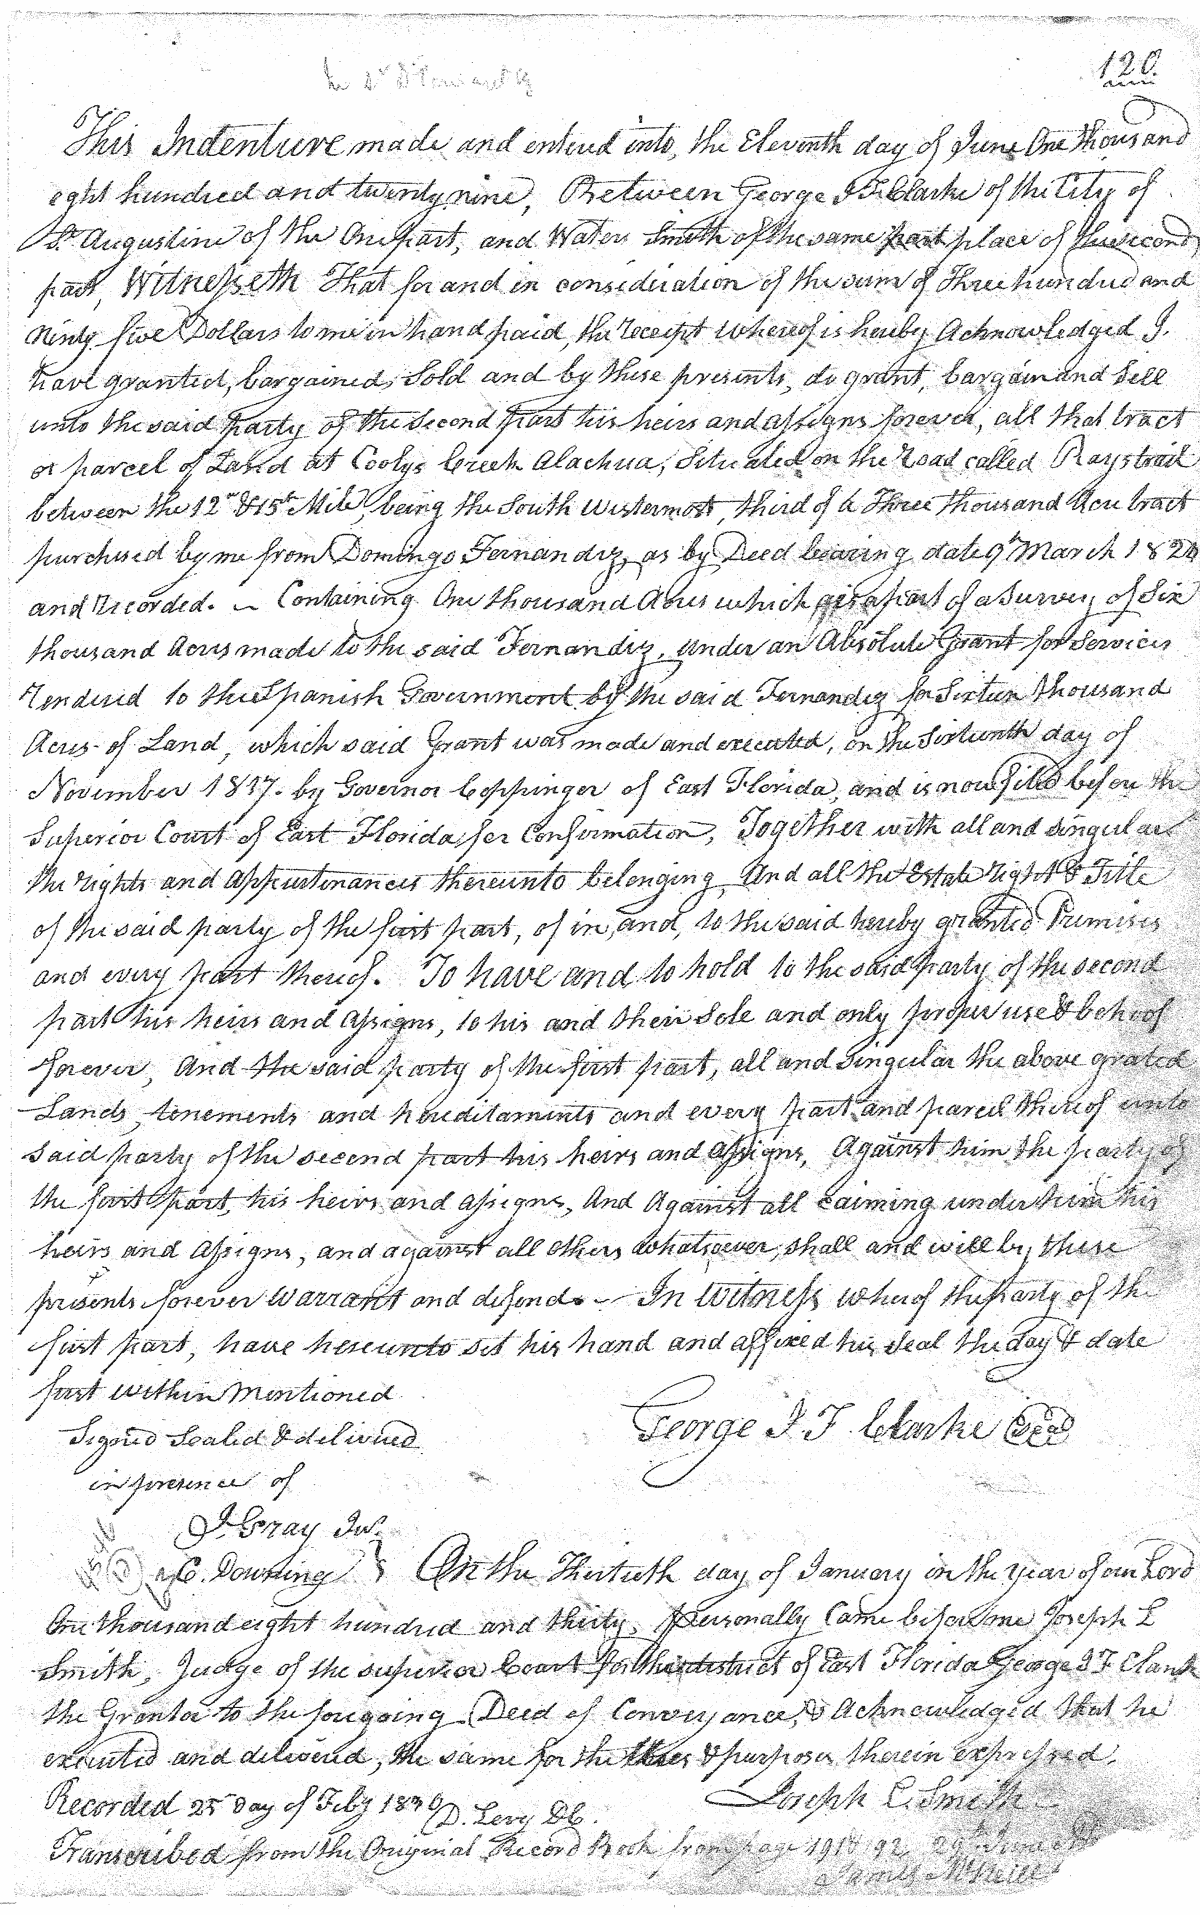 120
This Indenture made and entered into, the Eleventh day of June One thousand
eght hundred and twenty nine, Between George J F Clarke of the City of
St Augustine of the One part, and Waters Smith of the same part place of the second
part, Witnesseth That for and in consideration of the sum of Three hundred and
Ninety five Dollars to me in hand paid, the receipt whereof is hereby Acknowledged I.
have granted, bargained, Sold and by these presents, do grant, bargain and Sell
unto the said Party of the Second part his heirs and assigns forever, all that tract
or parcel of Land at Coolys Creek Alachua, Situated on the road called Rays trail
between the 12th & 15th Mile, being the South westermost, third of a Three thousand Acre tract
purchased by me from Domingo Fernandez, as by Deed bearing date 9th March 182
and recorded. Containing One thousand Acres which is a part of a Survey of Six
thousand Acres made to the said Fernandiz, under an Absolute Grant for Services
rendered to the Spanish Government by the said Fernandez for Sixteen thousand
Acres of Land, which said Grant was made and executed, on the Sixteenth day of
November 1817. by Governor Coppinger of East Florida, and is now filed before the
Superior Court of East Florida for Confirmation, Together with all and singular
the rights and appurtinances thereunto belonging, And all the Estate right & Title
of the said party of the first part, of in, and, to the said hereby granted Premises
and every part thereof. To have and to hold to the said party of the second
part his heirs and assigns, to his and their Sole and only proper use & behoof
forever, And the said party of the first part, all and Singular the above grated
Lands, tenements and hereditaments and every part and parcel thereof unto
said party of the second part his heirs and assigns, Against him the party of
the first part, his heirs and assigns, And Against all caiming under him his
heirs and Assigns, and against all others whatsoever, shall and will by these
presents forever warrant and defend. In Witness whereof the party of the
first part, have hereunto set his hand and affixed his Seal the day & date
first within Mentioned
Signed Sealed & delivered George J. F. Clarke Seal
in presence of
J. Gray Jnr.
C. Downing } On the Thirtieth day of January in the Year of our Lord
One thousand eight hundred and thirty, Personally Came before me Joseph L
Smith, Judge of the superior Court for the district of East Florida George J F Clark
the Grantor to the foregoing Deed of Conveyance, & Acknowledged that he
executed and delivered, the same for the Uses & purposes therein expressed.
Joseph L. Smith
Recorded 25 day of Feby 1830 D. Levy DC.
Transcribed from the Original Record Book from page 191 92 29th June
James McNeill